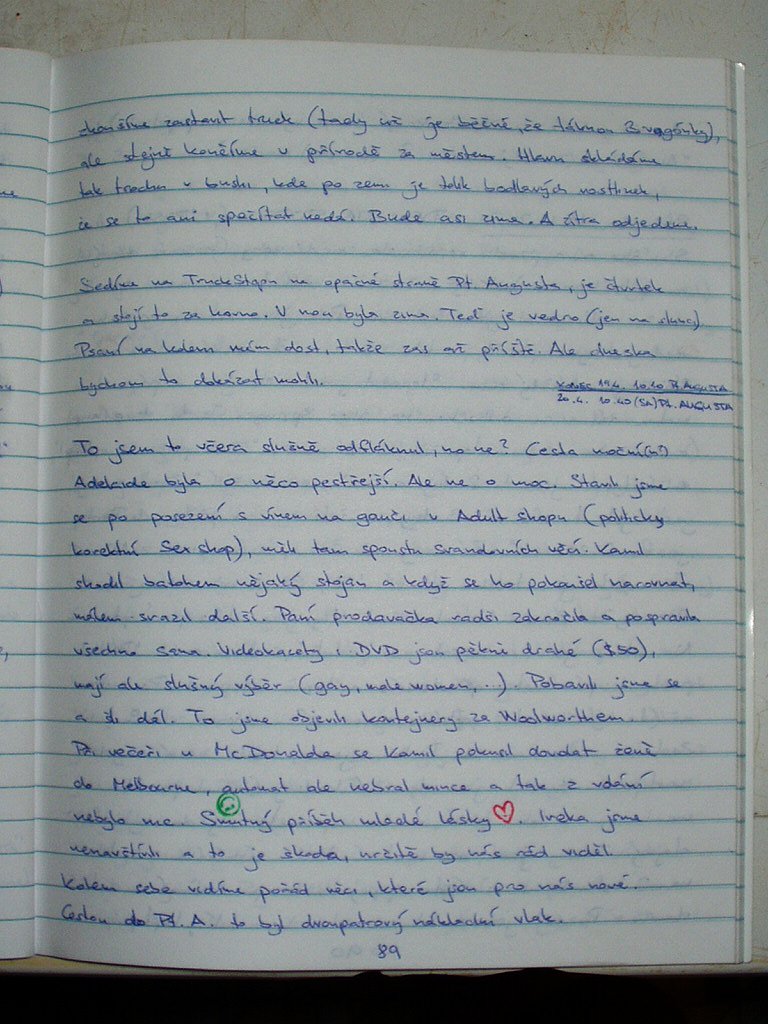 zkoušíme zastavit truck (tady už je běžné, že táhnou 3 vagónky),
ale stejně končíme v přírodě za městem. Hlavu skládáme
tak trochu v bushi, kde po zemi je tolik bodlavých rostlinek,
že se to ani spočítat nedá. Bude asi zima. A zítra odjedeme.
Sedíme na TruckStopu na opačné straně Pt. Augusta, je čtvrtek
a stojí to za hovno. V noci byla zima. Teď je vedro (jen na slunci)
Psaní na kolenou mám dost, takže zas až příště. Ale dneska
bychom to dokázat mohli.
KONEC 19.4. 10.10 Pt. AUGUSTA
20.4. 10.40 (SA) Pt. AUGUSTA
To jsem to včera slušně odfláknul, no ne? Cesta noční(m?)
Adelaide byla o něco pestřejší. Ale ne o moc. Stavili jsme
se po posezení s vínem na gauči v Adult shopu (politicky
korektní Sex shop), měli tam spoustu srandovních věcí. Kamil
shodil batohem nějaký stojan a když se ho pokoušel narovnat,
málem srazil další. Paní prodavačka radši zakročila a pospravila
všechno sama. Videokazety i DVD jsou pěkně drahé ($50),
mají ale slušný výběr (gay, male women, ...). Pobavili jsme se
a šli dál. To jsme objevili kontejnery za Woolworthem.
Při večeři u McDonalda se Kamil pokusil dovolat ženě
do Melbourne, automat ale nebral mince a tak z volání
nebylo nic. Smutný příběh mladé lásky. Ivoka jsme
nenavštívili a to je škoda, určitě by nás rád viděl.
Kolem sebe vidíme pořád věci, které jsou pro nás nové.
Cestou do Pt. A. to byl dvoupatrový nákladní vlak.
89